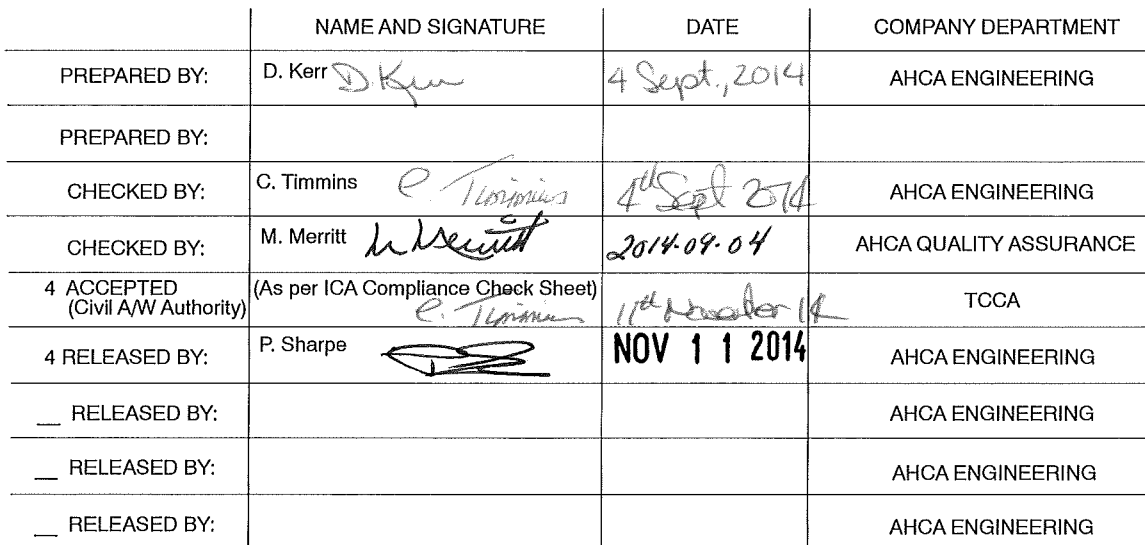 NAME AND SIGNATURE DATE COMPANY DEPARTMENT
PREPARED BY: D. Kerr D. Kerr 4 Sept., 2014 AHCA ENGINEERING
PREPARED BY:
CHECKED BY: C. Timmins C. Timmins 4th Sept 2014 AHCA ENGINEERING
CHECKED BY: M. Merritt M Merritt 2014-09-04 AHCA QUALITY ASSURANCE
4 ACCEPTED (As per ICA Compliance Check Sheet) TCCA
(Civil A/W Authority) C. Timmins 11th November 14
4 RELEASED BY: P. Sharpe NOV 1 1 2014 AHCA ENGINEERING
__ RELEASED BY: AHCA ENGINEERING
__ RELEASED BY: AHCA ENGINEERING
__ RELEASED BY: AHCA ENGINEERING